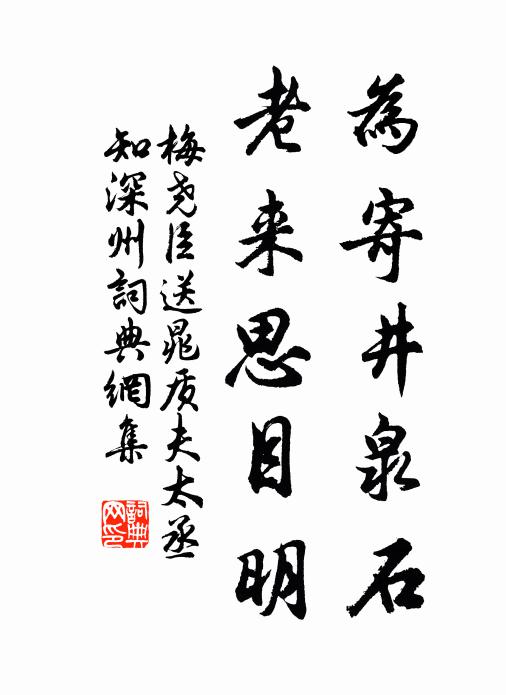 為寄井泉石
老来思目明
梅尧臣送晁质夫太丞
知深州詞典網集
詞典网印